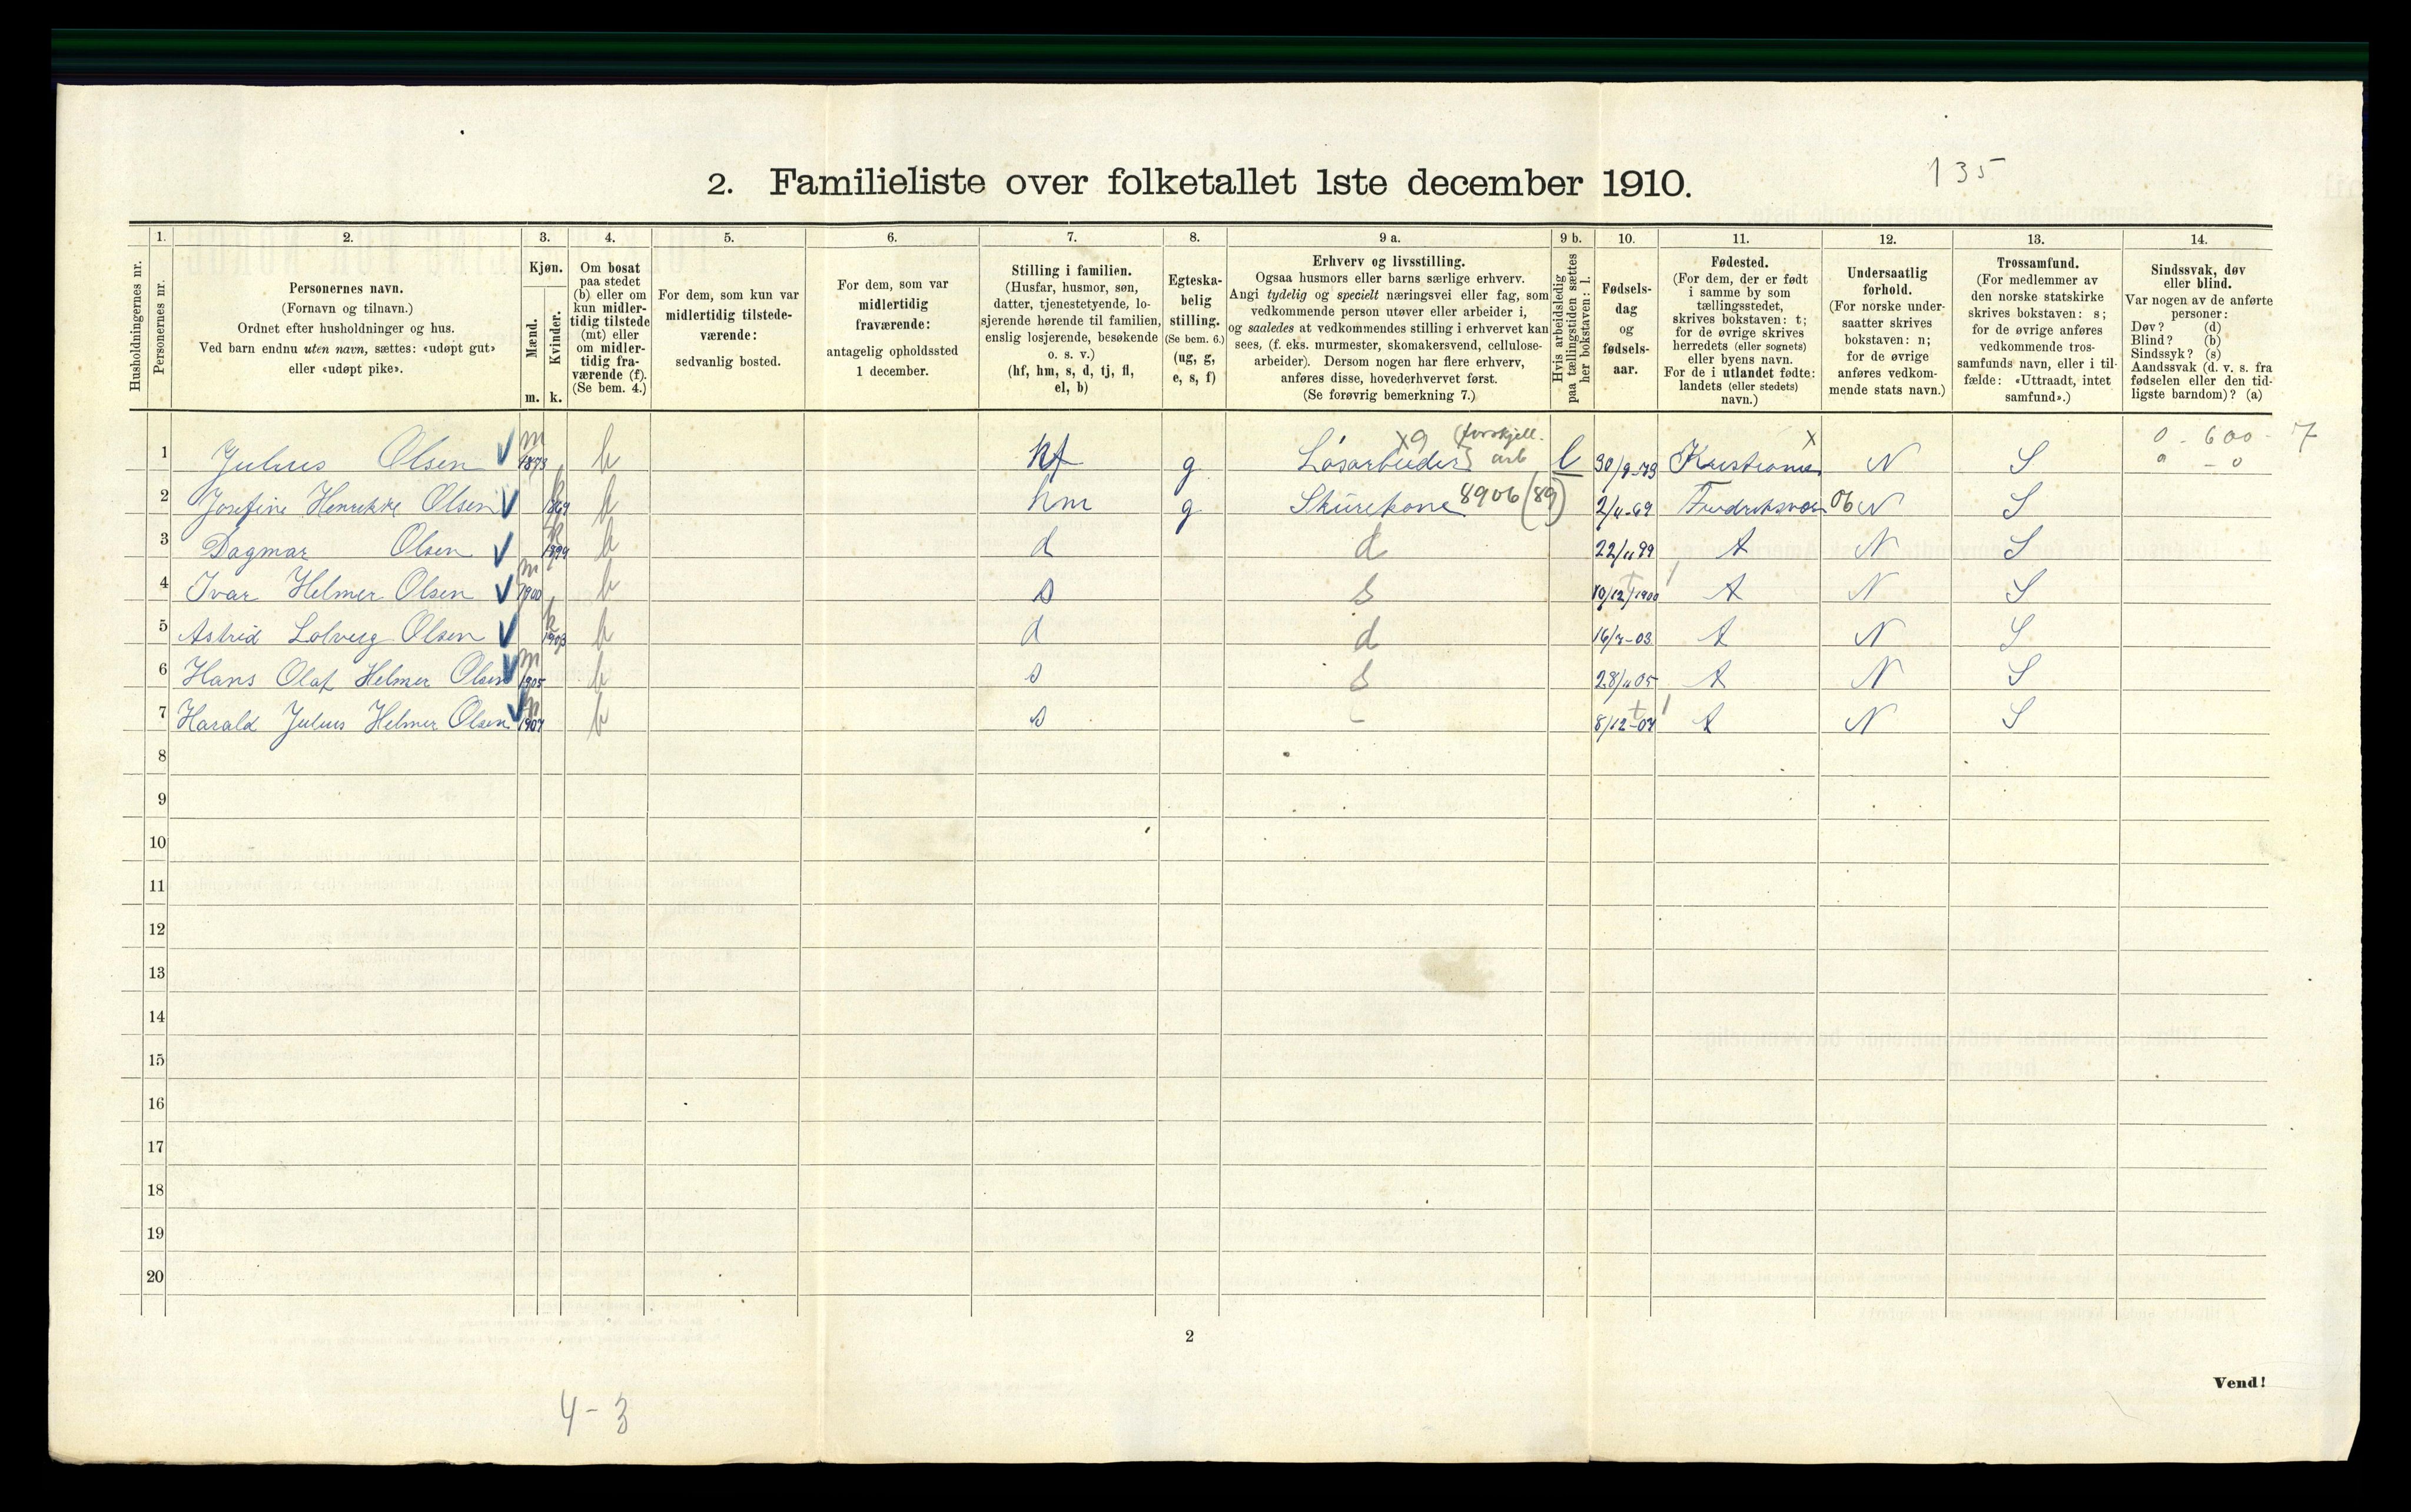 135
2. Familieliste over folketallet 1ste december 1910.
1. 2. 3. 4. 5. 6. 7. 8. 9 a. 9 b. 10. 11. 12. 13. 14.
Husholdningernes nr.
Personernes nr.
Personernes navn.
(Fornavn og tilnavn.)
Ordnet efter husholdninger og hus.
Ved barn endnu uten navn, sættes: «udøpt gut»
eller «udøpt pike».
Kjøn.
Mænd.
Kvinder.
m. k.
Om bosat
paa stedet
(b) eller om
kun midler-
tidig tilstede
(mt) eller
om midler-
tidig fra-
værende (f).
(Se bem. 4.)
For dem, som kun var
midlertidig tilstede-
værende:
sedvanlig bosted.
For dem, som var
midlertidig
fraværende:
antagelig opholdssted
1 december.
Stilling i familien.
(Husfar, husmor, søn,
datter, tjenestetyende, lo-
sjerende hørende til familien,
enslig losjerende, besøkende
o. s. v.)
(hf, hm, s, d, tj, fl,
el, b)
Egteska-
belig
stilling.
(Se bem. 6.)
(ug, g,
e, s, f)
Erhverv og livsstilling.
Ogsaa husmors eller barns særlige erhverv.
Angi tydelig og specielt næringsvei eller fag, som
vedkommende person utøver eller arbeider i,
og saaledes at vedkommendes stilling i erhvervet kan
sees, (f. eks. murmester, skomakersvend, cellulose-
arbeider). Dersom nogen har flere erhverv,
anføres disse, hovederhvervet først.
(Se forøvrig bemerkning 7.)
Hvis arbeidsledig
paa tællingstiden sættes
her bokstaven: l.
Fødsels-
dag
og
fødsels-
aar.
Fødested.
(For dem, der er født
i samme by som
tællingsstedet,
skrives bokstaven: t;
for de øvrige skrives
herredets (eller sognets)
eller byens navn.
For de i utlandet fødte:
landets (eller stedets)
navn.)
Undersaatlig
forhold.
(For norske under-
saatter skrives
bokstaven: n;
for de øvrige
anføres vedkom-
mende stats navn.)
Trossamfund.
(For medlemmer av
den norske statskirke
skrives bokstaven: s;
for de øvrige anføres
vedkommende tros-
samfunds navn, eller i til-
fælde: «Uttraadt, intet
samfund».)
Sindssvak, døv
eller blind.
Var nogen av de anførte
personer:
Døv? (d)
Blind? (b)
Sindssyk? (s)
Aandssvak (d. v. s. fra
fødselen eller den tid-
ligste barndom)? (a)
x9 (forskjell. x 0 - 600 - 7
1 Julius Olsen m 1873 b hf g Løsarbeider} arb l 30/9-73 Kristiania N S 0 - 0
2 Josefine Henrikke Olsen k 1869 b hm g Skurekone 8906 (89) 2/11-69 Fredriksvær 06 N S
3 Dagmar Olsen k 1899 b d d 22/11 99 t N S
4 Ivar Helmer Olsen m 1900 b s s 10/12 1900 t N S
5 Astrid Solveig Olsen k 1903 b d d 16/7-03 t N S
6 Hans Olaf Helmer Olsen m 1905 b s s 28/11 05 t N S
7 Harald Julius Helmer Olsen m 1907 b s - 8/12-07 t N S
8
9
10
11
12
13
14
15
16
17
18
19
20
2
Vend!
4-3